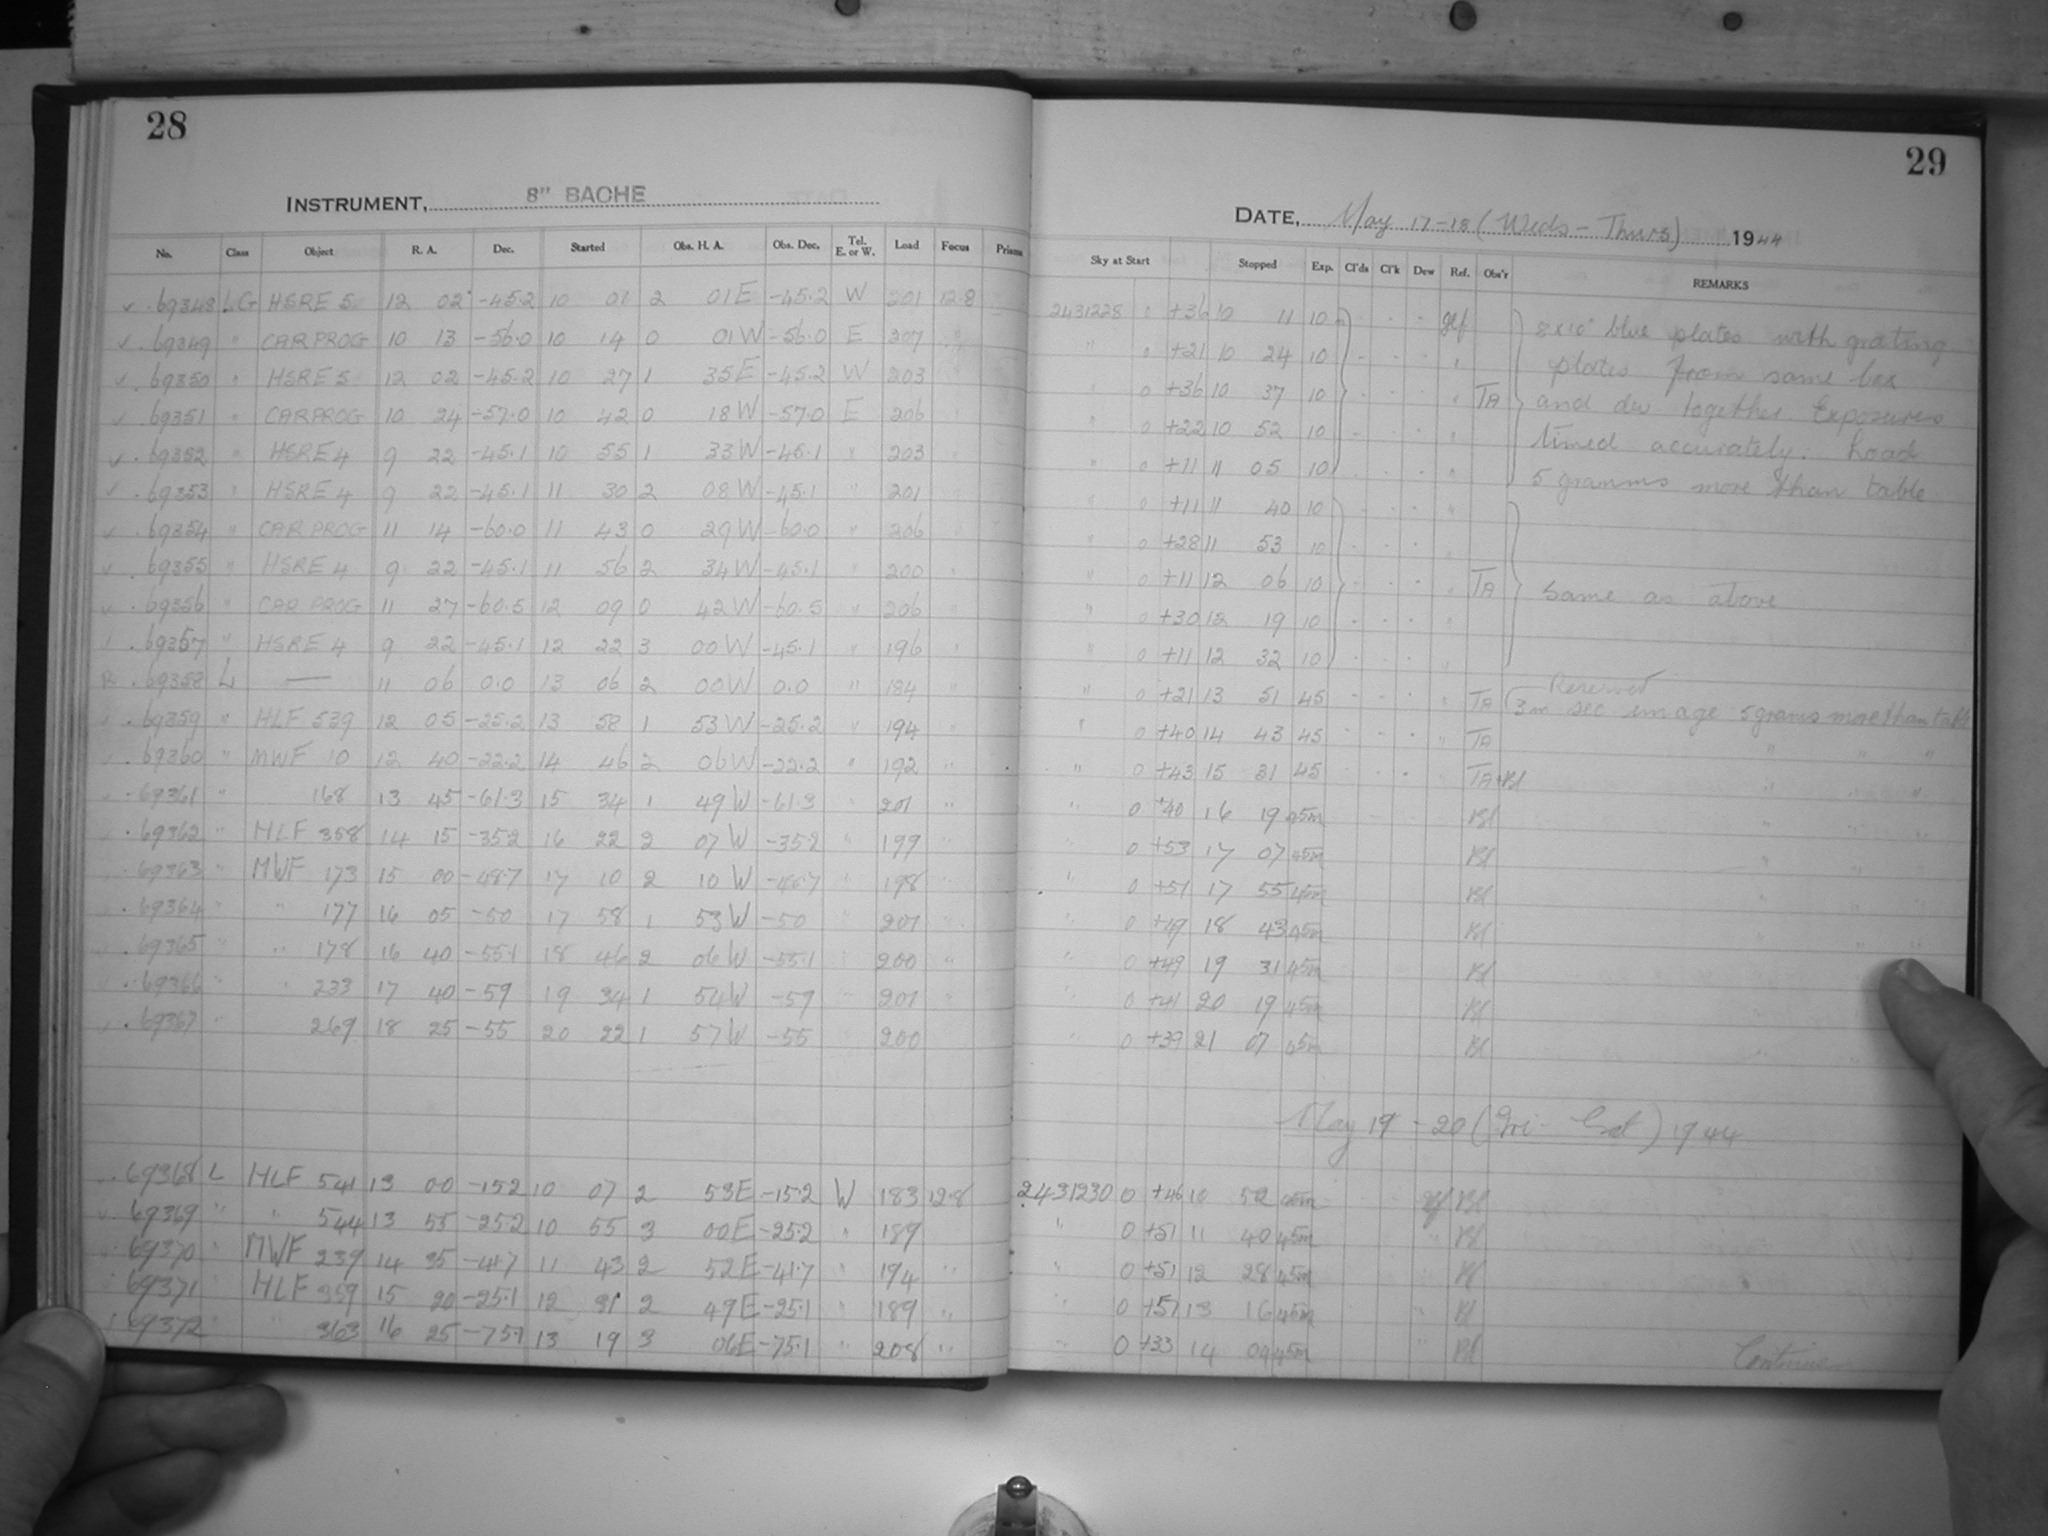 28
INSTRUMENT, 8" BACHE
No. Class Object R. A. Dec. Started Obs. H. A. Obs. Dec. Tel. E. or W. Load Focus Prisms
69348 LG HSRE 5 12 02 -45.2 10 01 2 01E -45.2 W 201 12.8
69349 " CARPROG 10 13 -56.0 10 14 0 01W -56.0 E 207 "
69350 " HSRE 5 12 02 -45.2 10 27 1 35E -45.2 W 203
69351 " CARPROG 10 24 -57.0 10 42 0 18W -57.0 E 206
69352 " HSRE 4 9 22 -45.1 10 55 1 33W -45.1 " 203
69353 " HSRE 4 9 22 -45.1 11 30 2 08W -45.1 201
69354 " CARPROG 11 14 -60.0 11 43 0 29W -60.0 " 206
69355 " HSRE 4 9 22 -45.1 11 56 2 34W -45.1 " 200
69356 " CARPROG 11 27 -60.5 12 09 0 42W -60.5 " 206
69357 " HSRE 4 9 22 -45.1 12 22 3 00W -45.1 " 196
R 69358 L — 11 06 0.0 13 06 2 00W 0.0 " 184 "
69359 " HLF 539 12 05 -25.2 13 58 1 53W -25.2 " 194 "
69360 " MWF 10 12 40 -22.2 14 46 2 06W -22.2 " 192 "
69361 " 168 13 45 -61.3 15 34 1 49W -61.3 " 201 "
69362 " HLF 358 14 15 -35.2 16 22 2 07W -35.2 " 199 "
69363 " MWF 173 15 00 -48.7 17 10 2 10W -48.7 " 198 "
69364 " " 177 16 05 -50 17 58 1 53W -50 " 201 "
69365 " " 178 16 40 -55.1 18 46 2 06W -55.1 " 200 "
69366 " " 233 17 40 -59 19 34 1 54W -59 " 201 "
69367 " 269 18 25 -55 20 22 1 57W -55 200
69368 L HLF 541 13 00 -15.2 10 07 2 53E -15.2 W 183 12.8
69369 " " 544 13 55 -25.2 10 55 3 00E -25.2 " 189
69370 " MWF 239 14 35 -41.7 11 43 2 52E -41.7 " 194 "
69371 HLF 359 15 20 -25.1 12 31 2 49E -25.1 " 189 "
69372 " " 363 16 25 -75.1 13 19 3 06E -75.1 " 208 "
29
DATE, May 17-18 (Weds - Thurs) 1944
Sky at Start Stopped Exp. Cl'ds Cl'k Dew Ref. Obs'r REMARKS
2431228 0 +36 10 11 10 8x10" blue plates with grating
" 0 +21 10 24 10 plates from same box
" 0 +36 10 37 10 TA and dev together. Exposures
" 0 +22 10 52 10 timed accurately. Load
" 0 +11 11 05 10 5 gramms more than table
" 0 +11 11 40 10
" 0 +28 11 53 10
" 0 +11 12 06 10 TA Same as above
" 0 +30 12 19 10
" 0 +11 12 32 10
Reserved
" 0 +21 13 51 45 TA 3m sec image 5 grams more than table
" 0 +40 14 43 45 TA " " "
" 0 +43 15 31 45 TA+Bl " "
" 0 +40 16 19 45m Bl " "
" 0 +53 17 07 45m Bl
" 0 +51 17 55 45m Bl
" 0 +49 18 43 45m Bl
" 0 +49 19 31 45m Bl
" 0 +41 20 19 45m Bl
" 0 +39 21 07 45m Bl
May 19 - 20 (Fri - Sat) 1944
2431230 0 +46 10 52 45m Bl
" 0 +51 11 40 45m " Bl
" 0 +51 12 28 45m " Bl
" 0 +57 13 16 45m " Bl
" 0 +33 14 04 45m " Bl